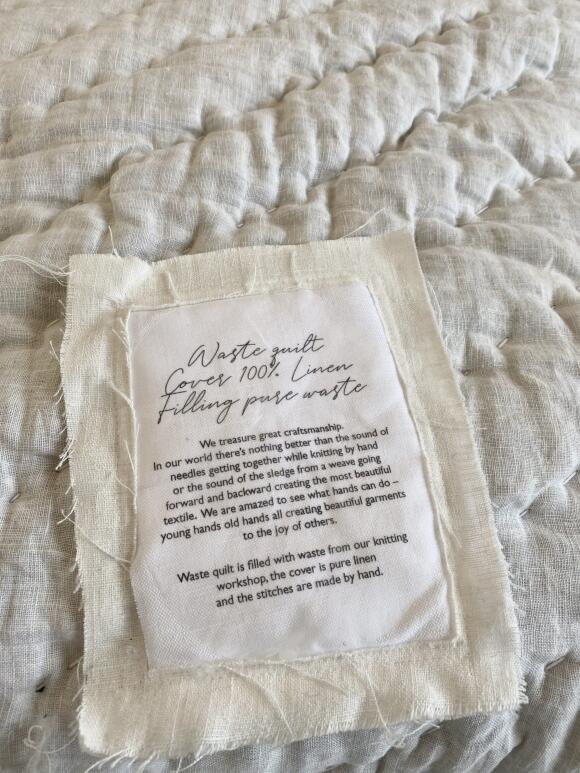 Waste quilt
Cover 100% Linen
Filling pure waste
We treasure great craftsmanship.
In our world there's nothing better than the sound of
needles getting together while knitting by hand
or the sound of the sledge from a weave going
forward and backward creating the most beautiful
textile. We are amazed to see what hands can do –
young hands old hands all creating beautiful garments
to the joy of others.
Waste quilt is filled with waste from our knitting
workshop, the cover is pure linen
and the stitches are made by hand.